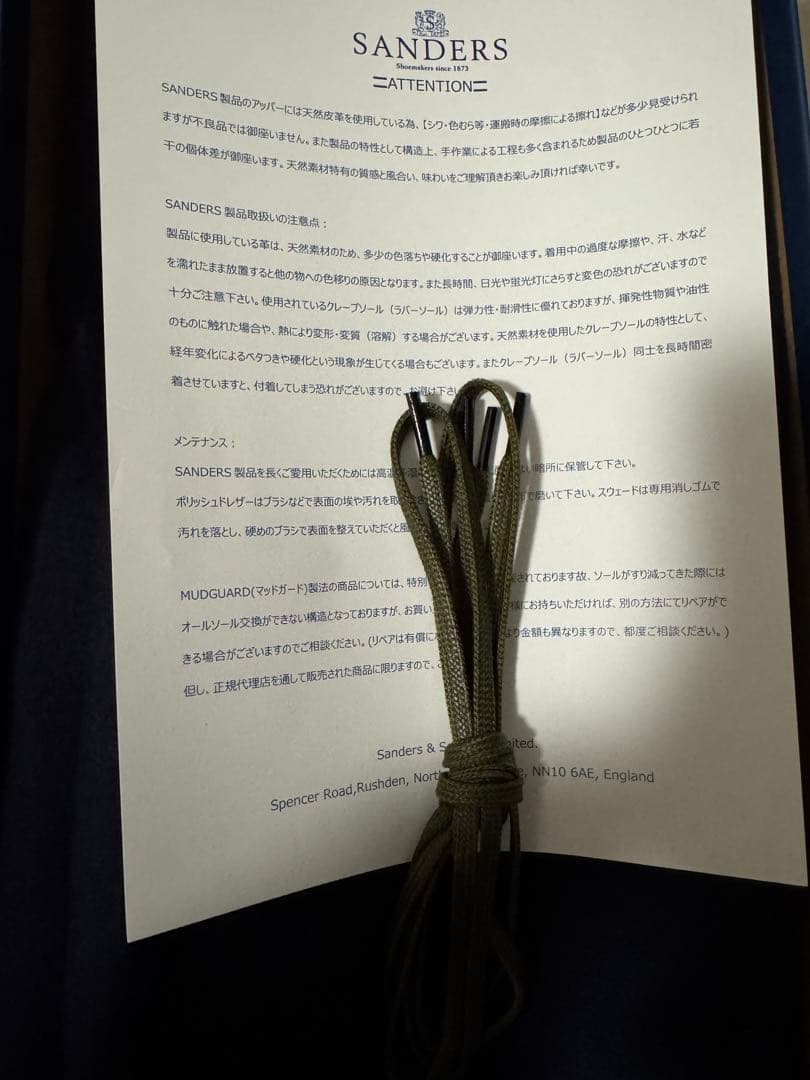 SANDERS
Shoemakers since 1873
=ATTENTION=
SANDERS 製品のアッパーには天然皮革を使用している為、【シワ・色むら等・運搬時の摩擦による擦れ】などが多少見受けられ
ますが不良品では御座いません。また製品の特性として構造上、手作業による工程も多く含まれるため製品のひとつひとつに若
干の個体差が御座います。天然素材特有の質感と風合い、味わいをご理解頂きお楽しみ頂ければ幸いです。
SANDERS 製品取扱いの注意点：
製品に使用している革は、天然素材のため、多少の色落ちや硬化することが御座います。着用中の過度な摩擦や、汗、水など
を濡れたまま放置すると他の物への色移りの原因となります。また長時間、日光や蛍光灯にさらすと変色の恐れがございますので
十分ご注意下さい。使用されているクレープソール（ラバーソール）は弾力性・耐滑性に優れておりますが、揮発性物質や油性
のものに触れた場合や、熱により変形・変質（溶解）する場合がございます。天然素材を使用したクレープソールの特性として、
経年変化によるベタつきや硬化という現象が生じてくる場合もございます。またクレープソール（ラバーソール）同士を長時間密
着させていますと、付着してしまう恐れがございますので、お避け下さ
メンテナンス：
SANDERS 製品を長くご愛用いただくためには高温 い暗所に保管して下さい。
ポリッシュドレザーはブラシなどで表面の埃や汚れを取 で磨いて下さい。スウェードは専用消しゴムで
汚れを落とし、硬めのブラシで表面を整えていただくと風
MUDGUARD(マッドガード)製法の商品については、特別 されております故、ソールがすり減ってきた際には
オールソール交換ができない構造となっておりますが、お買い 様にお持ちいただければ、別の方法にてリペアがで
きる場合がございますのでご相談ください。(リペアは有償に より金額も異なりますので、都度ご相談ください。)
但し、正規代理店を通して販売された商品に限りますので、
Sanders & S ited.
Spencer Road,Rushden, Nort e, NN10 6AE, England